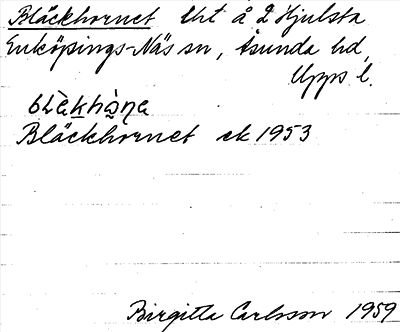 Bläckhornet lht å 2 Hjulsta
Enköpings-Näs sn, Åsunda hd,
Upps l.
Bläckhornet ek 1953
Birgitta Carlsson 1959